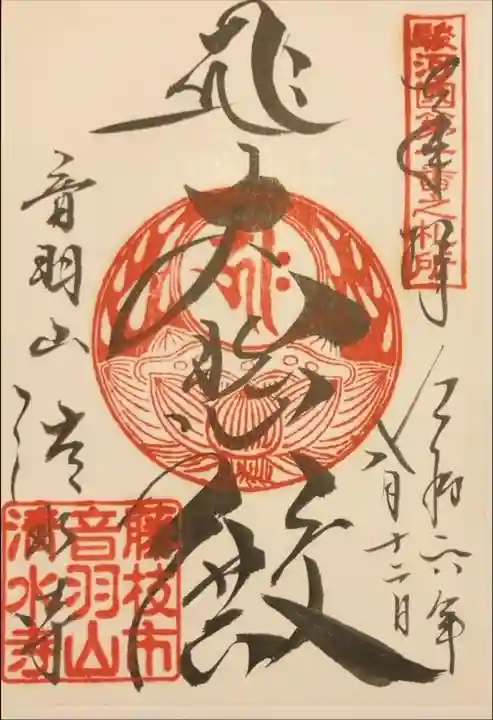 駿河國第壹番之札所
奉拝
令和六年
八月十二日
大悲殿
音羽山
清水寺
藤枝市
音羽山
清水寺